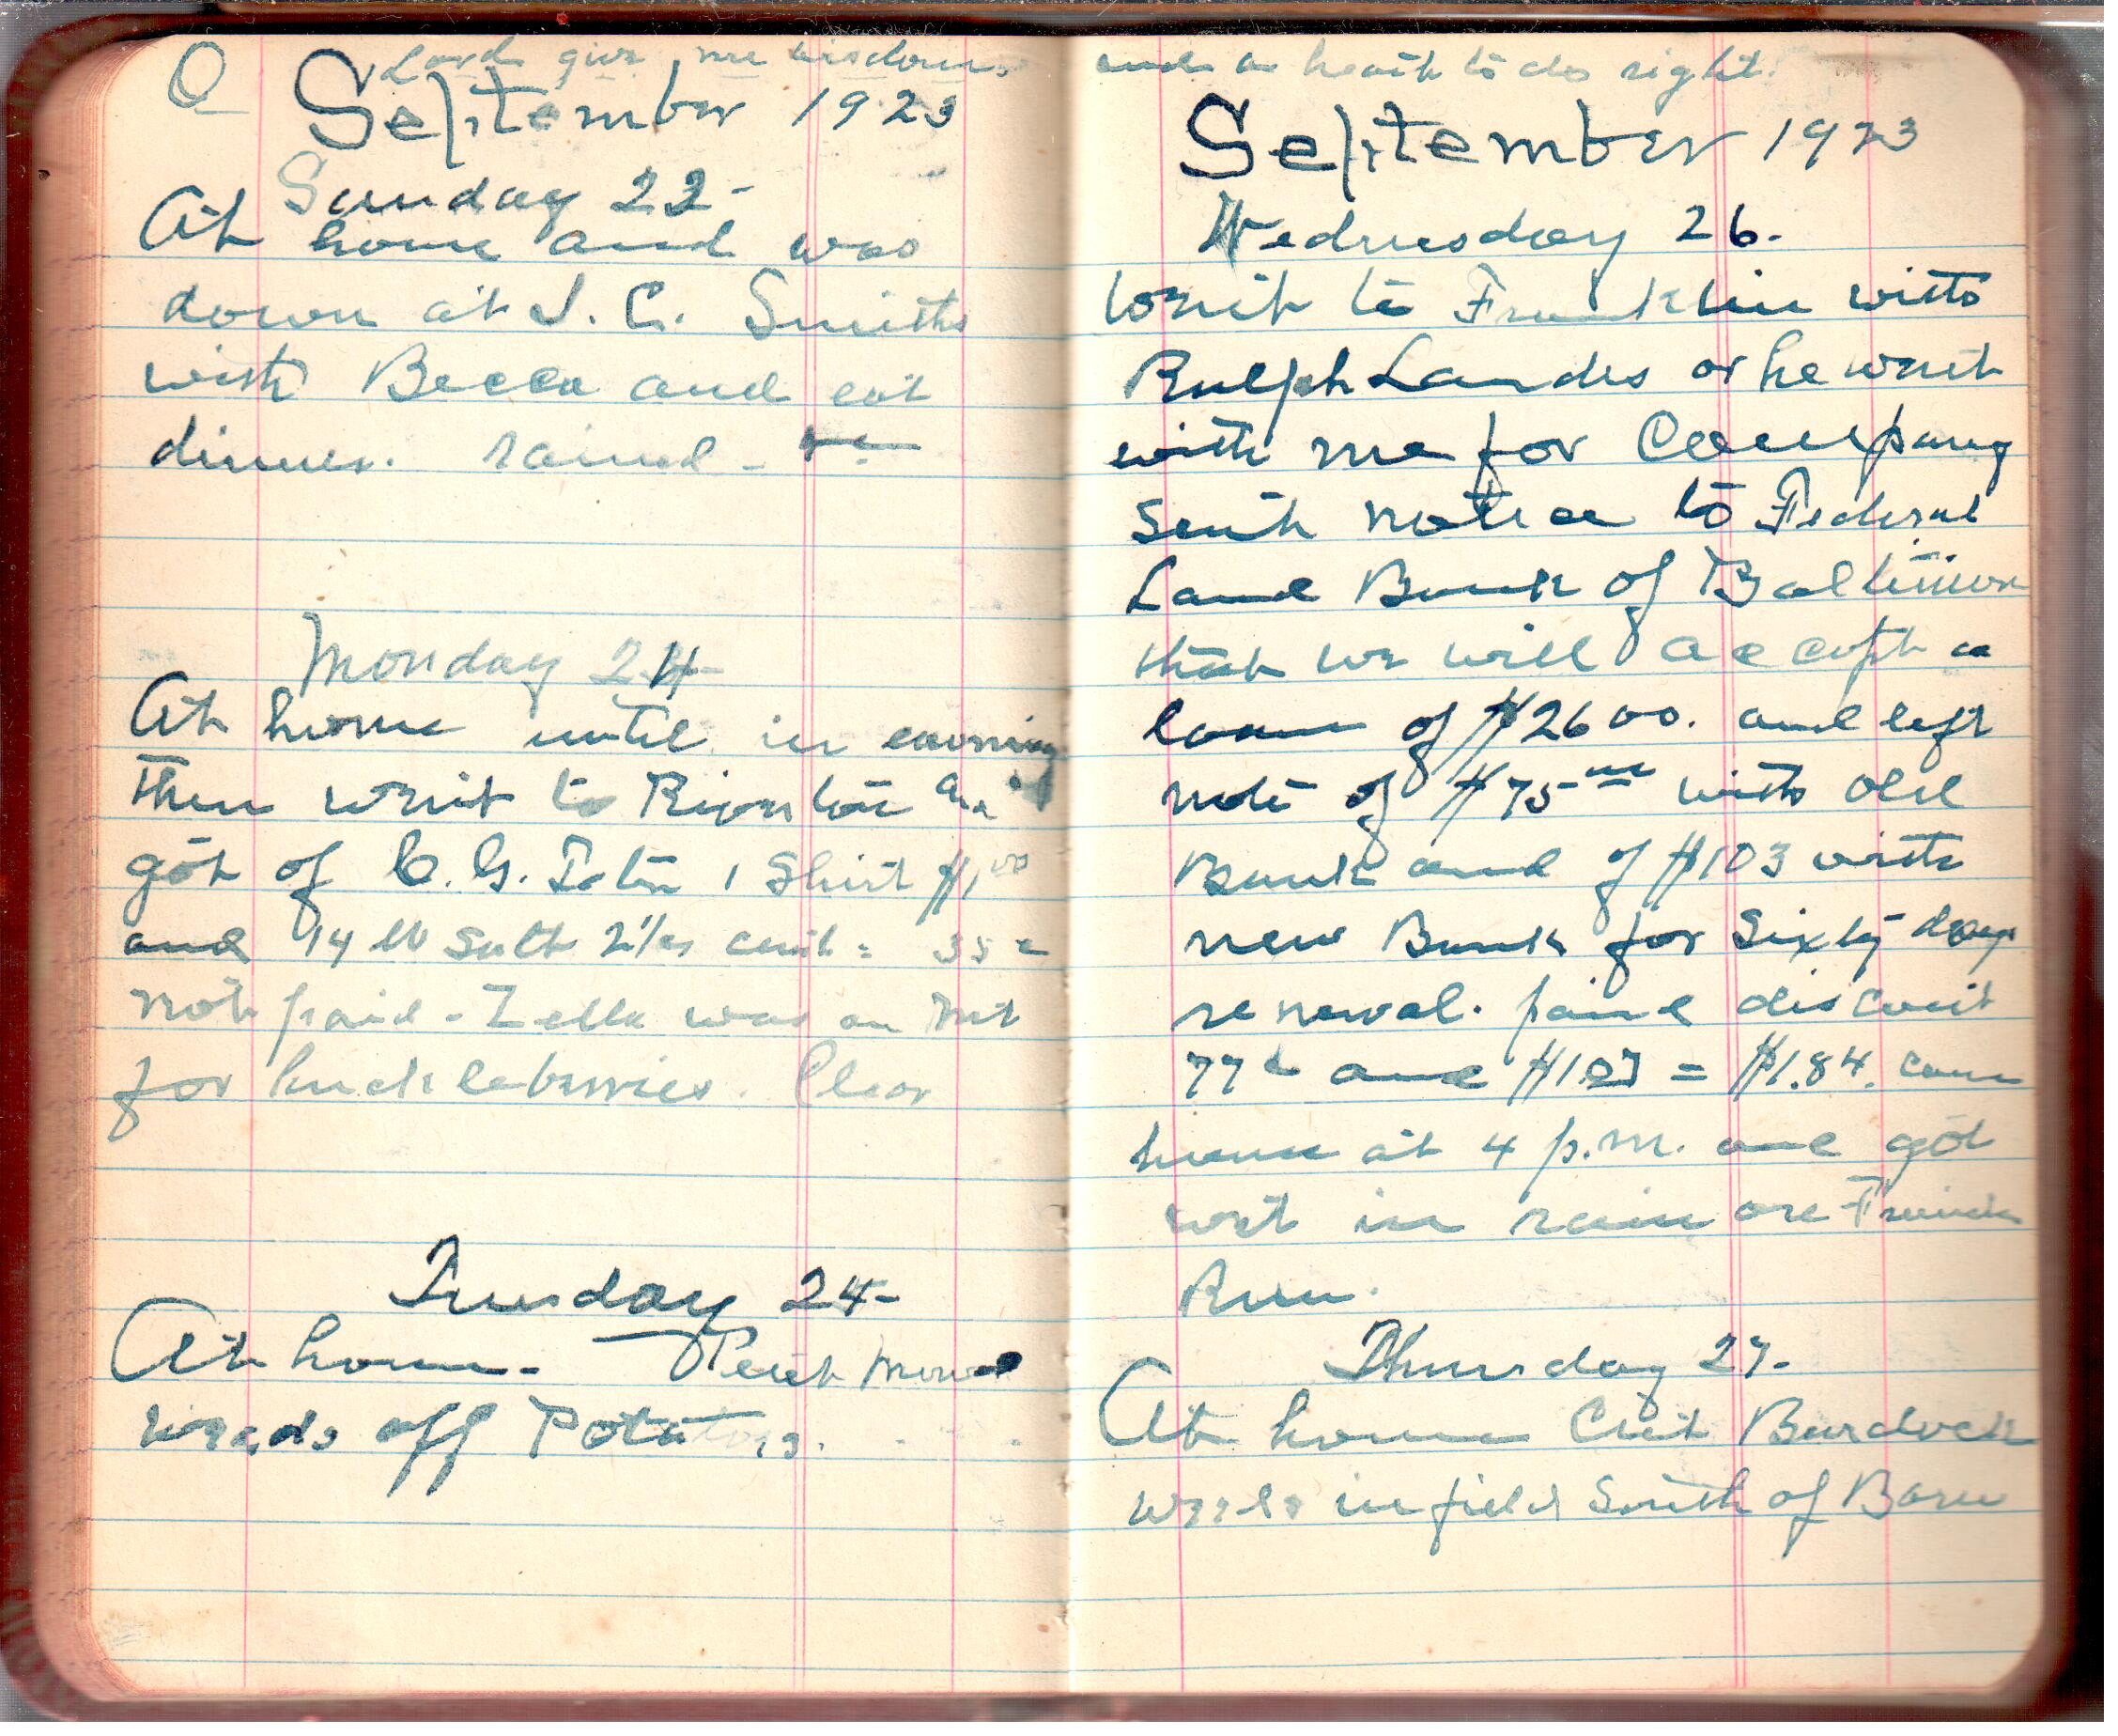 O Lord give me wisdom
September 1923
Sunday 22-
At home and was
down at J. C. Smiths
with Becca and eat
dinner. rained -
Monday 24
At home until in evening
Then went to Riverton and
got of C. G. 1 Shirt $1.00
and 14 lb Salt 2½ cent = 35 c
not paid - Zella was on Mt
for huckleberries. Clear
Tuesday 24-
At home - Pent mowed
weeds off Potatoes.
and a heart to do right.
September 1923
Wednesday 26.
Went to Franklin with
Ralph Landes or he went
with me for Company
Sent notice to Federal
Land Bank of Baltimore
that we will accept a
loan of $2600. and left
note of $75 with old
Bank and of $103 with
new Bank for Sixty days
renewal. paid discount
77 c and $1.07 = $1.84. came
home at 4 p.m. and got
wet in rain on Friends
Run.
Thursday 27-
At home Cut Burdock
weeds in field South of Barn